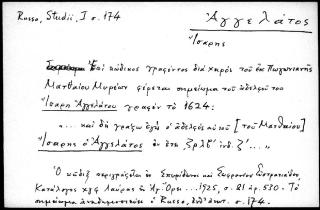 Russo, Studii, I σ. 174
Ἀγγελάτος
Ἴσαρης
Ἐπὶ κώδικος γραφέντος διὰ χειρὸς τοῦ ἐκ Πωγωνιανῆς
Ματθαίου Μυρέων φέρεται σημείωμα τοῦ ἀδελφοῦ του
Ἴσαρη Ἀγγελάτου γραφὲν τὸ 1624:
... καὶ δὴ γράφω ἐγὼ ὁ ἀδελφὸς αὐτοῦ [τοῦ Ματθαίου]
Ἴσαρης ὁ Ἀγγελάτος ἐν ἔτει ,ζρλβʹ ἰνδ. ζʹ ...»
Ὁ κῶδιξ περιγράφεται ἐν Σπυρίδωνος καὶ Σωφρονίου Εὐστρατιάδου,
Κατάλογος χφφ Λαύρας ἐν Ἁγ. Ὄρει ...1925, σ. 81 ἀρ. 530. Τὸ
σημείωμα ἀναδημοσιεύει ὁ Russo, ἔνθ' ἀνωτ. σ. 174.